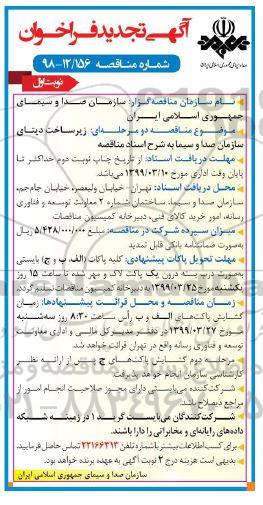 آگهی تجدید فراخوان
شماره مناقصه ۹۸-۱۲/۱۵۶
نوبت اول
نام سازمان مناقصه‌گزار: سازمان صدا و سیمای
جمهوری اسلامی ایران
موضوع مناقصه دو مرحله‌ای: زیرساخت دیتای
سازمان صدا و سیما به شرح اسناد مناقصه
مهلت دریافت اسناد: از تاریخ چاپ نوبت دوم حداکثر تا
پایان وقت اداری مورخ ۱۳۹۹/۰۳/۱۰ می‌باشد
محل دریافت اسناد: تهران - خیابان ولیعصر، خیابان جام‌جم،
سازمان صدا و سیما، ساختمان شماره ۲ معاونت توسعه و فناوری
رسانه، امور خرید کالای فنی، دبیرخانه کمیسیون مناقصات
میزان سپرده شرکت در مناقصه: مبلغ ۵/۴۲۸/۰۰۰/۰۰۰ ریال
به‌صورت ضمانتنامه بانکی قابل تمدید
مهلت تحویل پاکات پیشنهادی: کلیه پاکات (الف، ب و ج) بایستی
به‌صورت درب بسته درون یک پاکت لاک و مهر شده تا ساعت ۱۵ روز
یکشنبه مورخ ۱۳۹۹/۰۳/۲۵ به دبیرخانه کمیسیون مناقصات تسلیم گردد.
زمان مناقصه و محل قرائت پیشنهادها: زمان
گشایش پاکت‌های الف و ب رأس ساعت ۸:۳۰ روز سه‌شنبه
مورخ ۱۳۹۹/۰۳/۲۷ در دفتر مدیرکل مالی و اداری معاونت
توسعه و فناوری رسانه واقع در تهران قرائت خواهد شد.
مرحله دوم گشایش پاکت‌های ج پس از ارائه نظر
کارشناسی سازمان انجام خواهد پذیرفت.
شرکت‌کننده می‌بایستی دارای مجوز صلاحیت انجام امور از
مراجع ذیصلاح باشد.
شرکت‌کنندگان می‌بایست گرید ۱ در زمینه شبکه
داده‌های رایانه‌ای و مخابراتی را دارا باشند.
برای کسب اطلاعات بیشتر با شماره تلفن ۲۲۱۶۶۳۱۳ تماس حاصل فرمایید.
بدیهی است هزینه درج ۲ نوبت آگهی به عهده برنده خواهد بود.
سازمان صدا و سیمای جمهوری اسلامی ایران